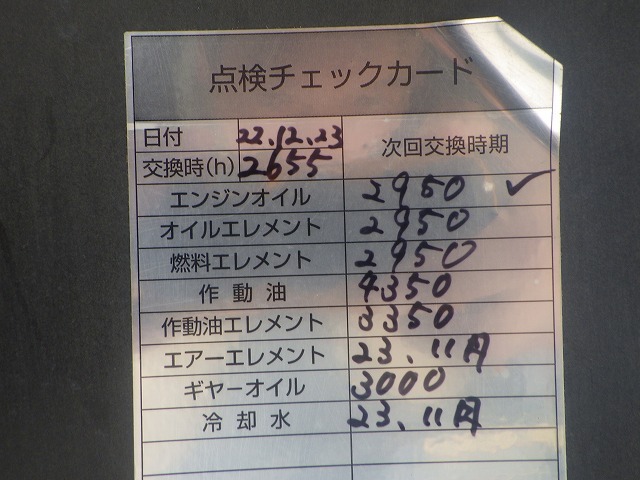 点検チェックカード
日付 22.12.23 次回交換時期
交換時(h) 2655
エンジンオイル 2950 ✓
オイルエレメント 2950
燃料エレメント 2950
作動油 4350
作動油エレメント 3350
エアーエレメント 23.11月
ギヤーオイル 3000
冷却水 23.11月